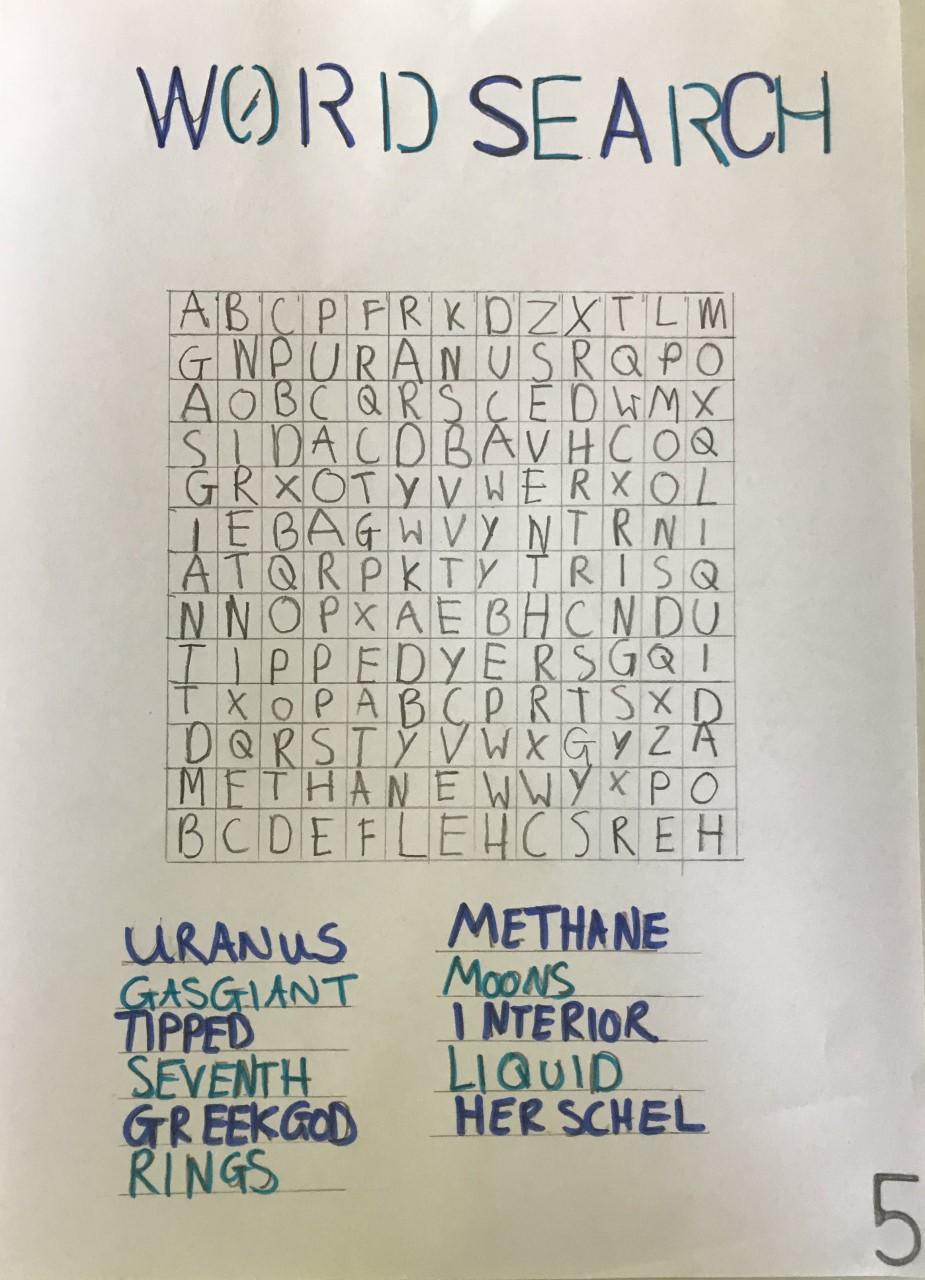 WORD SEARCH
A B C P F R K D Z X T L M
G N P U R A N U S R Q P O
A O B C Q R S C E D W M X
S I D A C D B A V H C O Q
G R X O T Y V W E R X O L
I E B A G W V Y N T R N I
A T Q R P K T Y T R I S Q
N N O P X A E B H C N D U
T I P P E D Y E R S G Q I
T X O P A B C P R T S X D
D Q R S T Y V W X G Y Z A
M E T H A N E W W Y X P O
B C D E F L E H C S R E H
URANUS
GASGIANT
TIPPED
SEVENTH
GREEKGOD
RINGS
METHANE
MOONS
INTERIOR
LIQUID
HERSCHEL
5